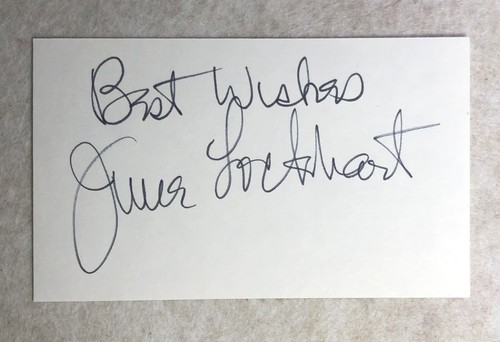 Best Wishes
June Lockhart